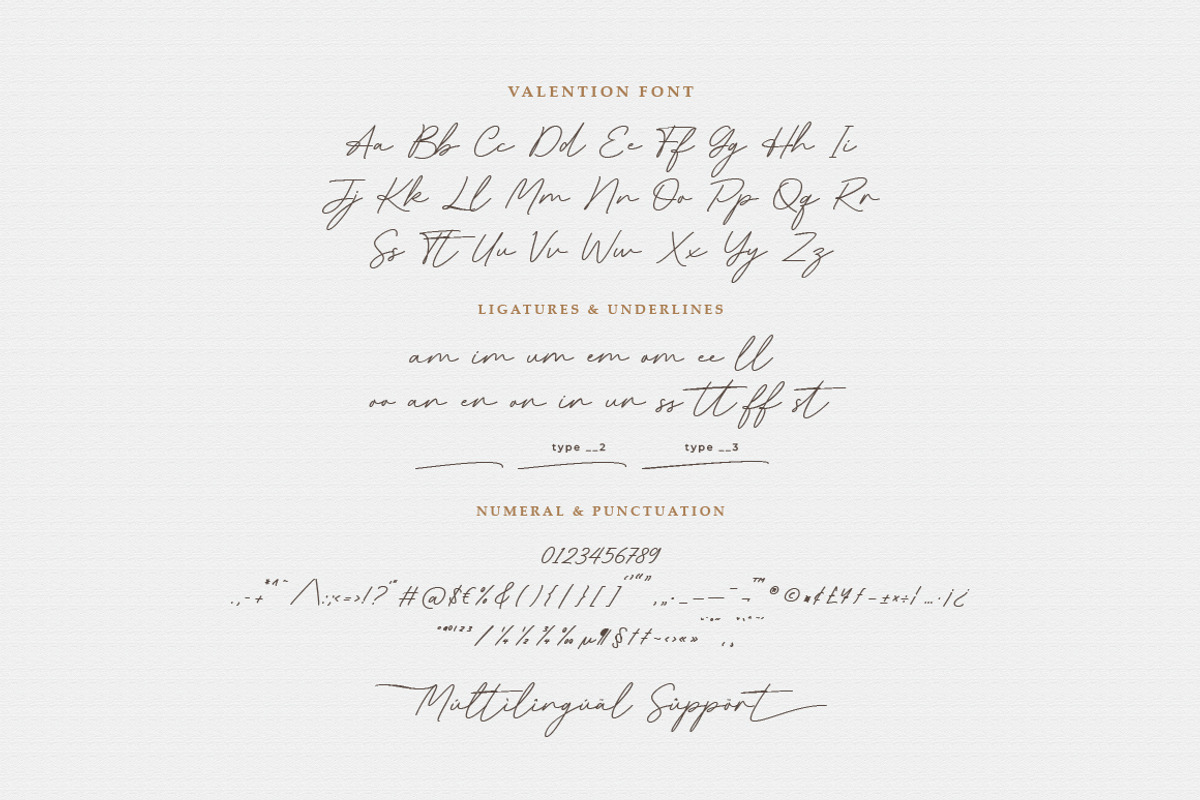 VALENTION FONT
Aa Bb Cc Dd Ee Ff Gg Hh Ii
Jj Kk Ll Mm Nn Oo Pp Qq Rr
Ss Tt Uu Vv Ww Xx Yy Zz
LIGATURES & UNDERLINES
am im um em om ee ll
oo an en on in un ss tt ff st
type __2 type __3
NUMERAL & PUNCTUATION
0123456789
.,-+*^~/\:;<=>!?'"#@$€%&(){|}[]‘’“”‚„·_—–¯¬™®©¤¢£¥ƒ−±×÷¦…·¡¿
ºª0123/¼½¾‰µ¶§†‡~‹›«»
Multilingual Support